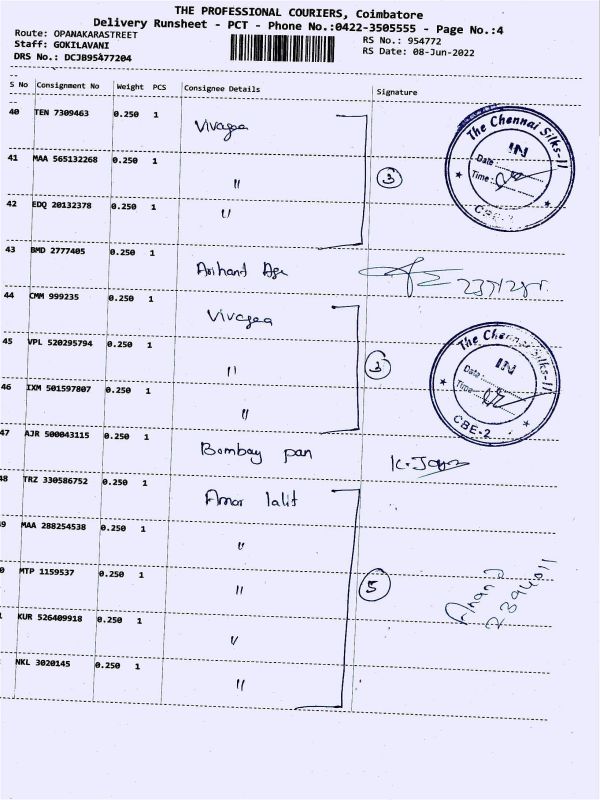 THE PROFESSIONAL COURIERS, Coimbatore
Delivery Runsheet - PCT - Phone No.:0422-3505555 - Page No.:4
Route: OPANAKARASTREET
RS No.: 954772
Staff: GOKILAVANI
RS Date: 08-Jun-2022
DRS No.: DCJB95477204
S No Consignment No Weight PCS Consignee Details Signature
40 TEN 7309463 0.250 1 Vivagaa
41 MAA 565132268 0.250 1 "
42 EDQ 20132378 0.250 1 "
3
The Chennai Silks-II
IN
Date
Time:
CBE-2
43 BMD 2777405 0.250 1 Arihand Age
44 CMM 999235 0.250 1 Vivagaa
45 VPL 520295794 0.250 1 "
46 IXM 501597807 0.250 1 "
3
The Chennai Silks-II
IN
Date
Time
CBE-2
47 AJR 500043115 0.250 1 Bombay pan
48 TRZ 330586752 0.250 1 Amar lalit
9 MAA 288254538 0.250 1 "
0 MTP 1159537 0.250 1 "
KUR 526409918 0.250 1 "
NKL 3020145 0.250 1 "
5
Anand